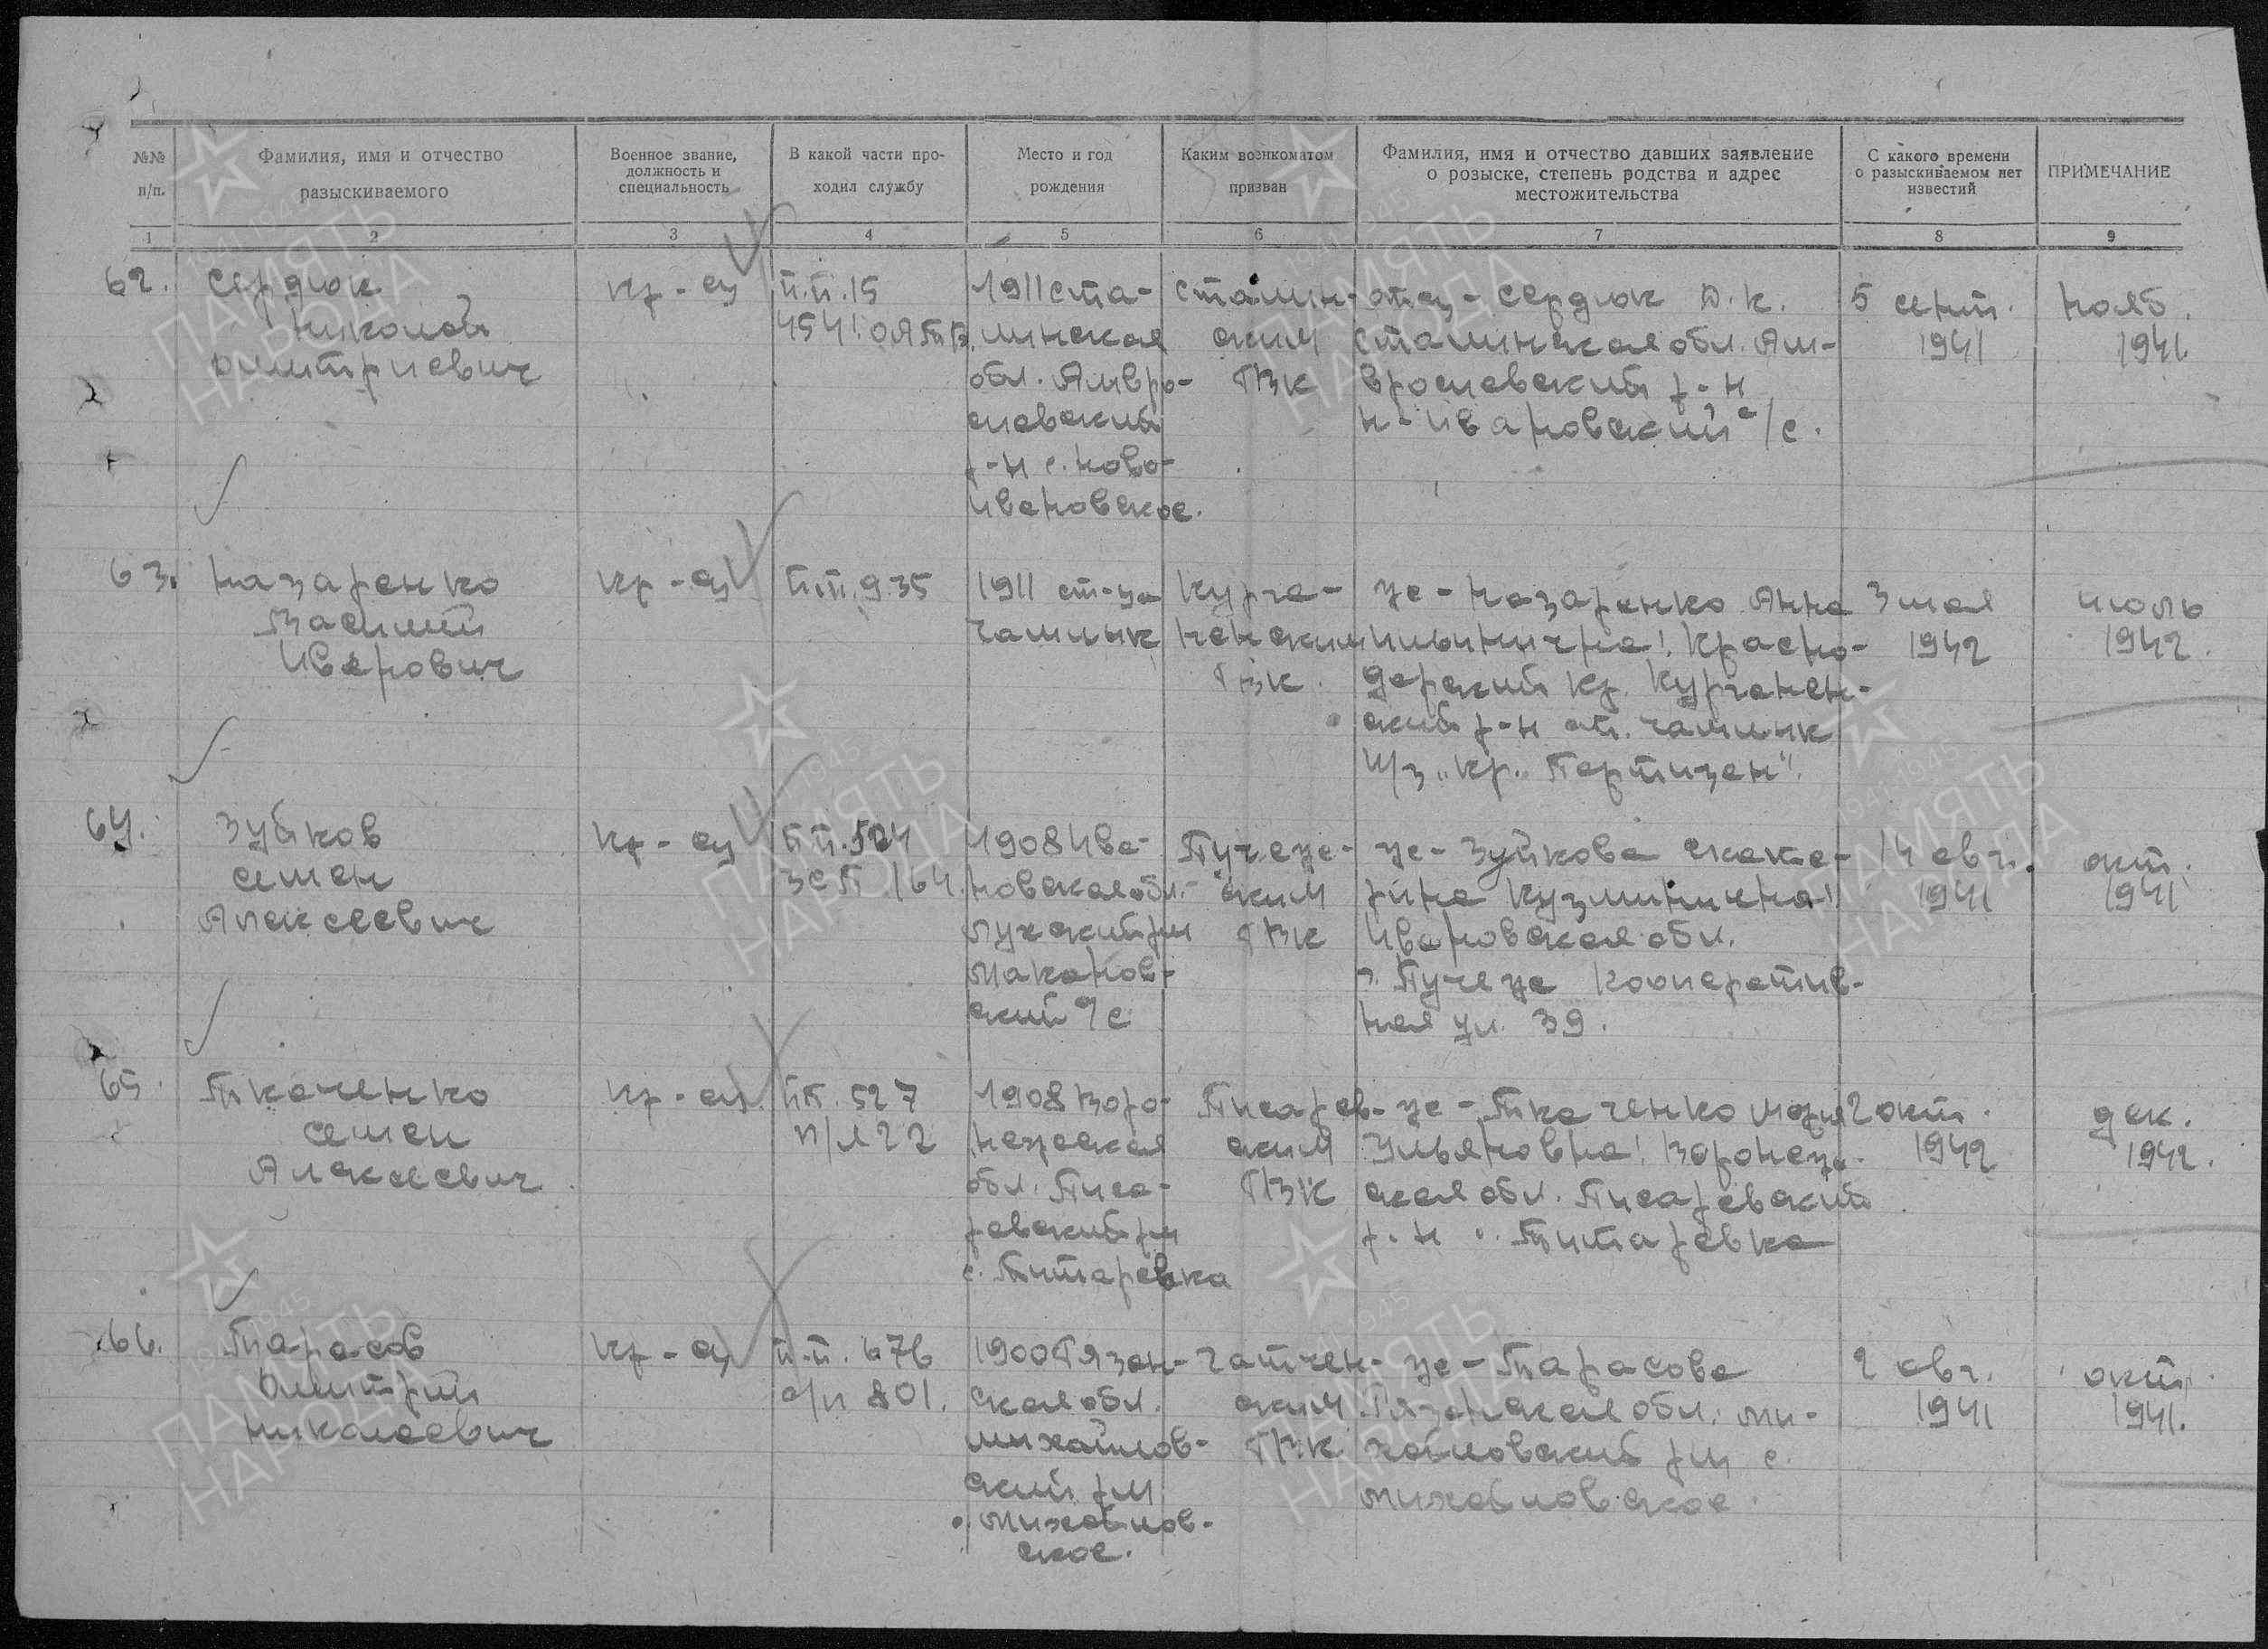 №№ п/п.
Фамилия, имя и отчество разыскиваемого
Военное звание, должность и специальность
В какой части проходил службу
Место и год рождения
Каким военкоматом призван
Фамилия, имя и отчество давших заявление о розыске, степень родства и адрес местожительства
С какого времени о разыскиваемом нет известий
ПРИМЕЧАНИЕ
1 2 3 4 5 6 7 8 9
62.
Сердюк
Николай
Дмитриевич
кр-ец
п.п. 15
1911 Ста-
линская
обл. Амвро-
сиевский
р-н с. Ново-
Ивановское.
Сталин-
ским
РВК
отец - Сердюк Д. К.
Сталинская обл. Ам-
вросиевский р-н
Н-Ивановский с/с.
5 сент.
1941
нояб.
1941
63.
Назаренко
Василий
Иванович
кр-ец
п.п. 935
1911 ст-ца
Чамлык
Курга-
ненским
РВК.
же - Назаренко Анна
Ильинична! Красно-
дарский кр. Курганен-
ский р-н ст. Чамлык
к/з „Кр. Партизан".
3 мая
1942
июль
1942.
64.
Семен
Алексеевич
кр-ец
ЗСП /64.
1908 Ива-
новская обл.
ский с/с
Пучеж-
ским
РВК
же - Зуйкова Екате-
рина Кузминична!
Ивановская обл.
г. Пучеж Кооператив-
ная ул. 39.
14 авг.
1941
окт.
1941
65.
Ткаченко
Семен
Алексеевич
кр-ец
пп. 527
п/я 22
1908 Воро-
нежская
обл. Писа-
ревский рн
с. Титаревка
Писарев-
ским
РВК
же - Ткаченко
Ульяновна! Воронеж-
ская обл. Писаревский
р-н с. Титаревка
2 окт.
1942
дек.
1942.
66.
Тарасов
Дмитрий
Николаевич
кр-ец
п.п. 676
с/п 801.
1900 Рязан-
ская обл.
Михайлов-
ский рн
с. Михайлов-
ское.
Гатчен-
ским
РВК
же - Тарасова
Рязанская обл. Ми-
хайловский рн с.
Михайловское.
2 авг.
1941
окт.
1941.
1941-1945
ПАМЯТЬ
НАРОДА